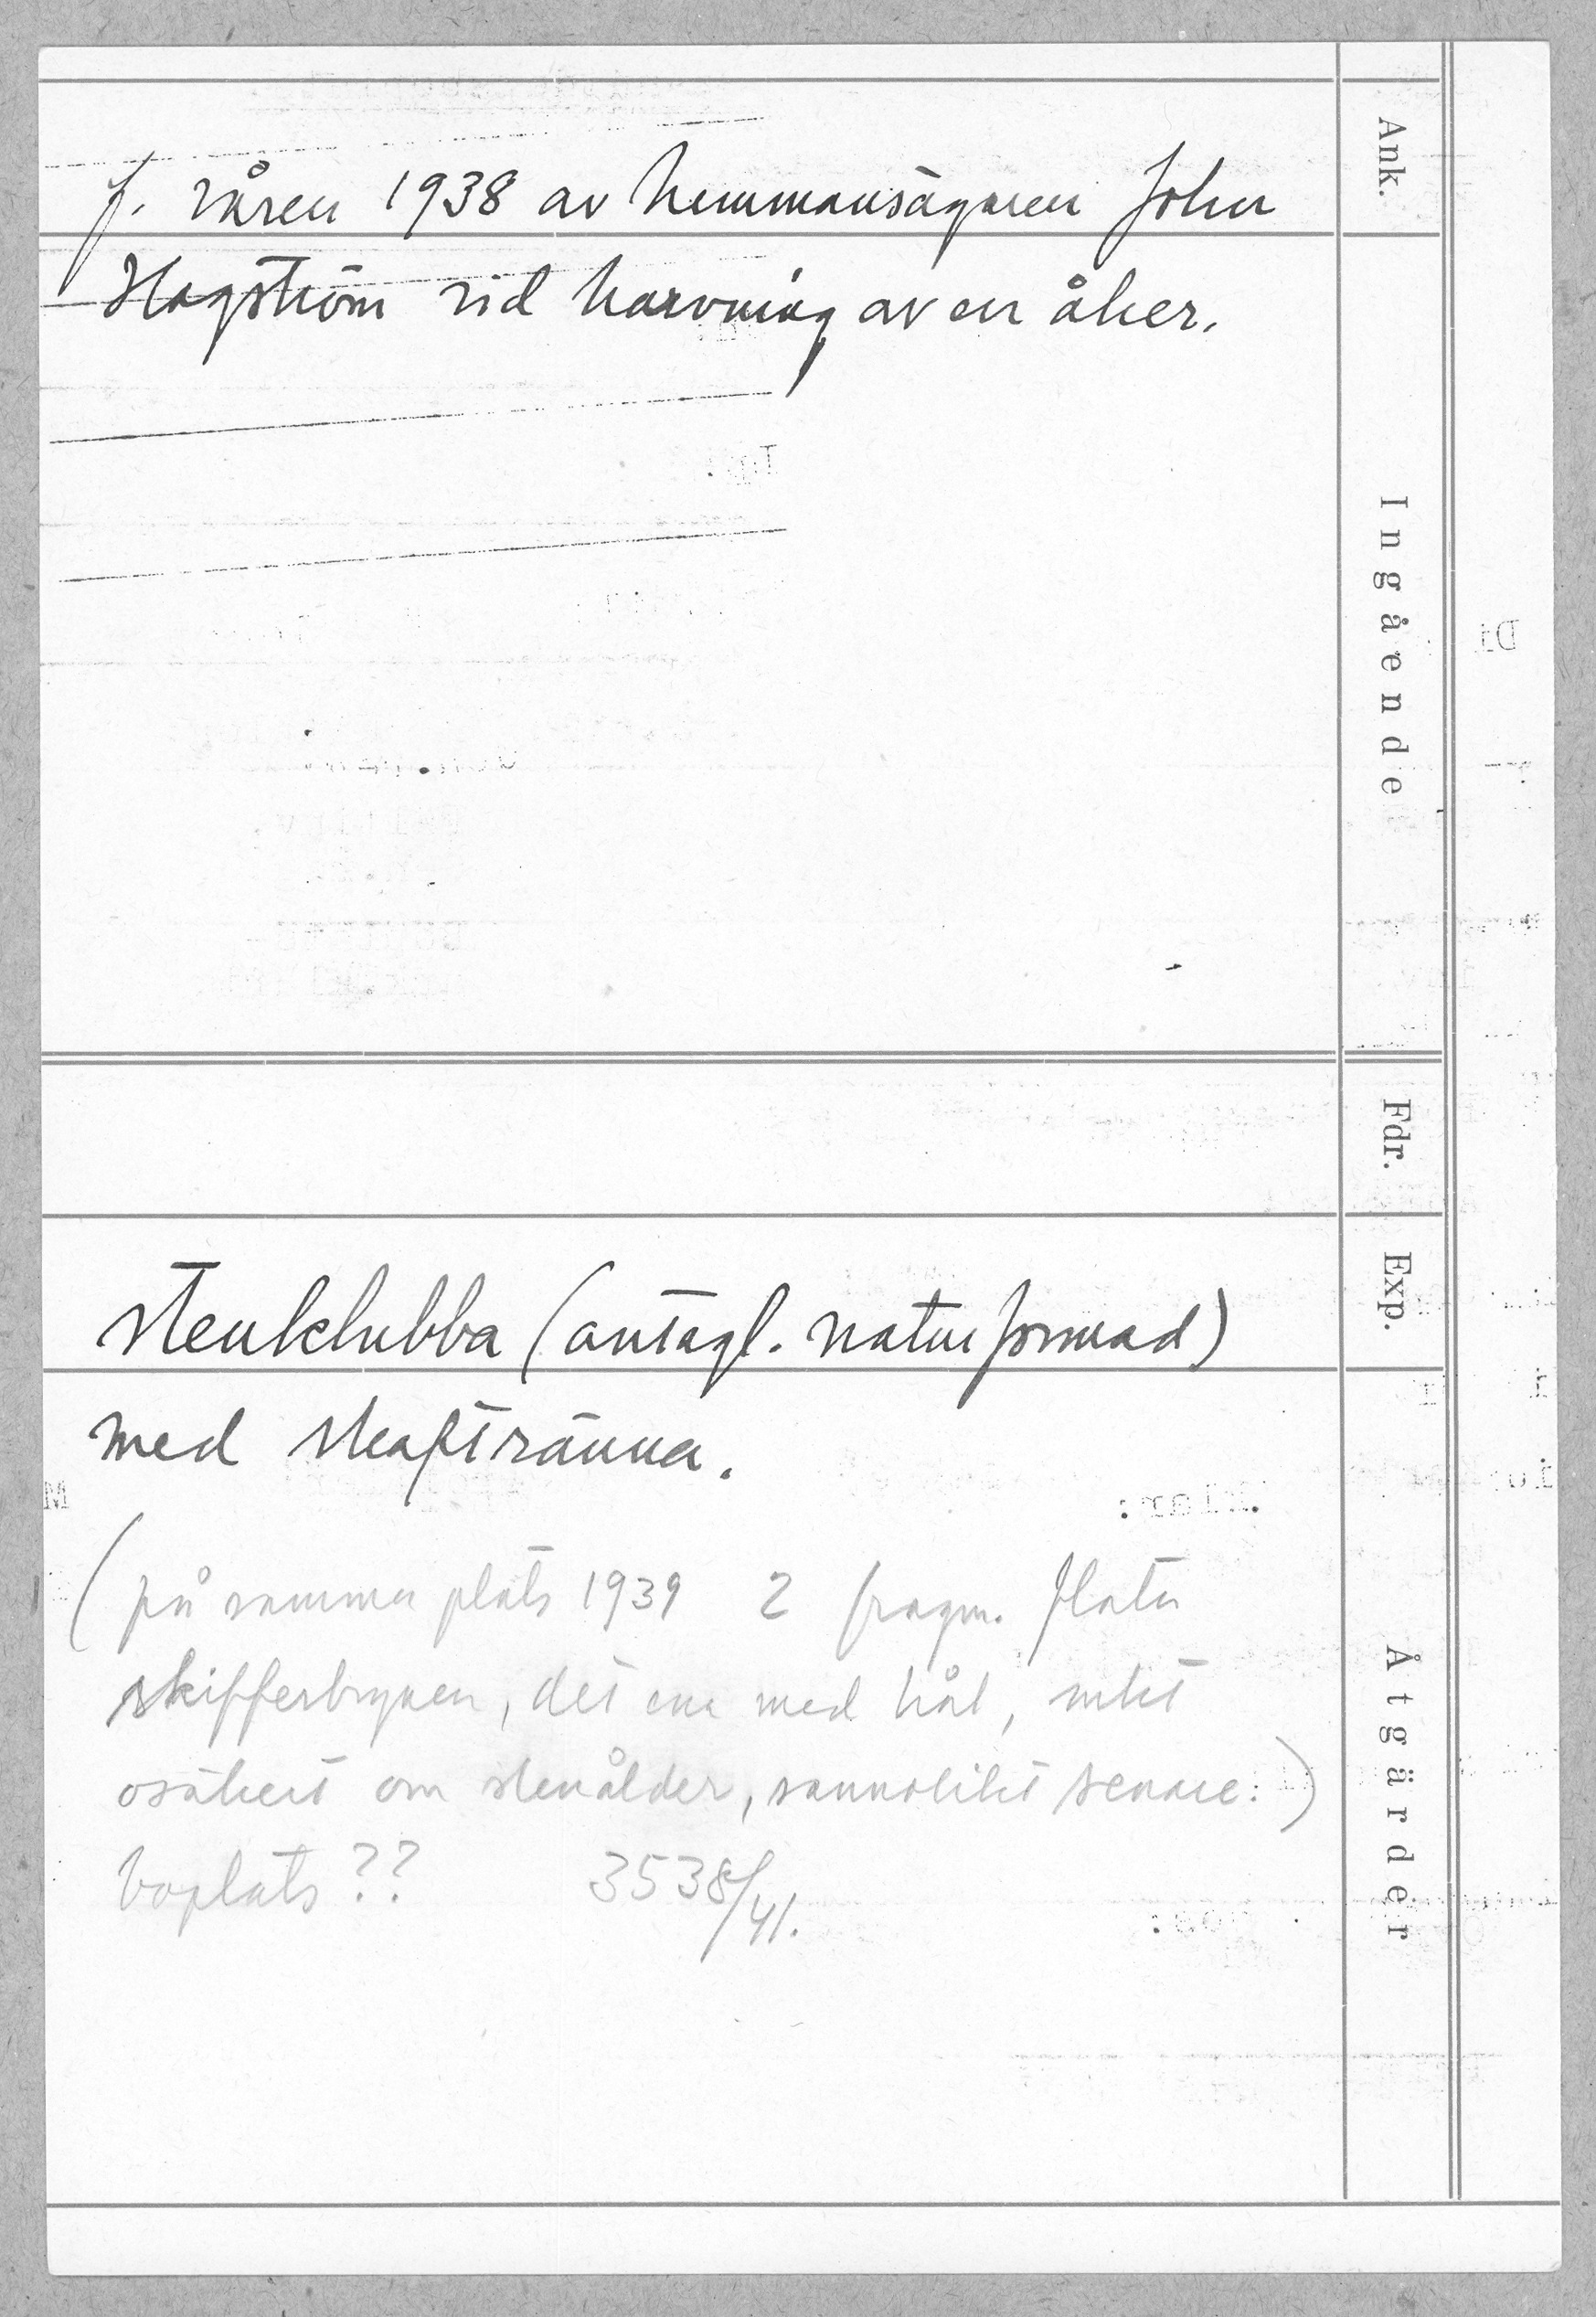 f. våren 1938 av hemmansägaren John
Hagström vid harvning av en åker.
stenklubba (antagl. naturformad)
med skaftränna.
(på samma plats 1939 2 fragm. flata
skifferbrynen, det ena med hål,
osäkert om stenålder, sannolikt senare.)
boplats??
3538/41.
Ank.
Ingående
Fdr.
Exp.
Åtgärder